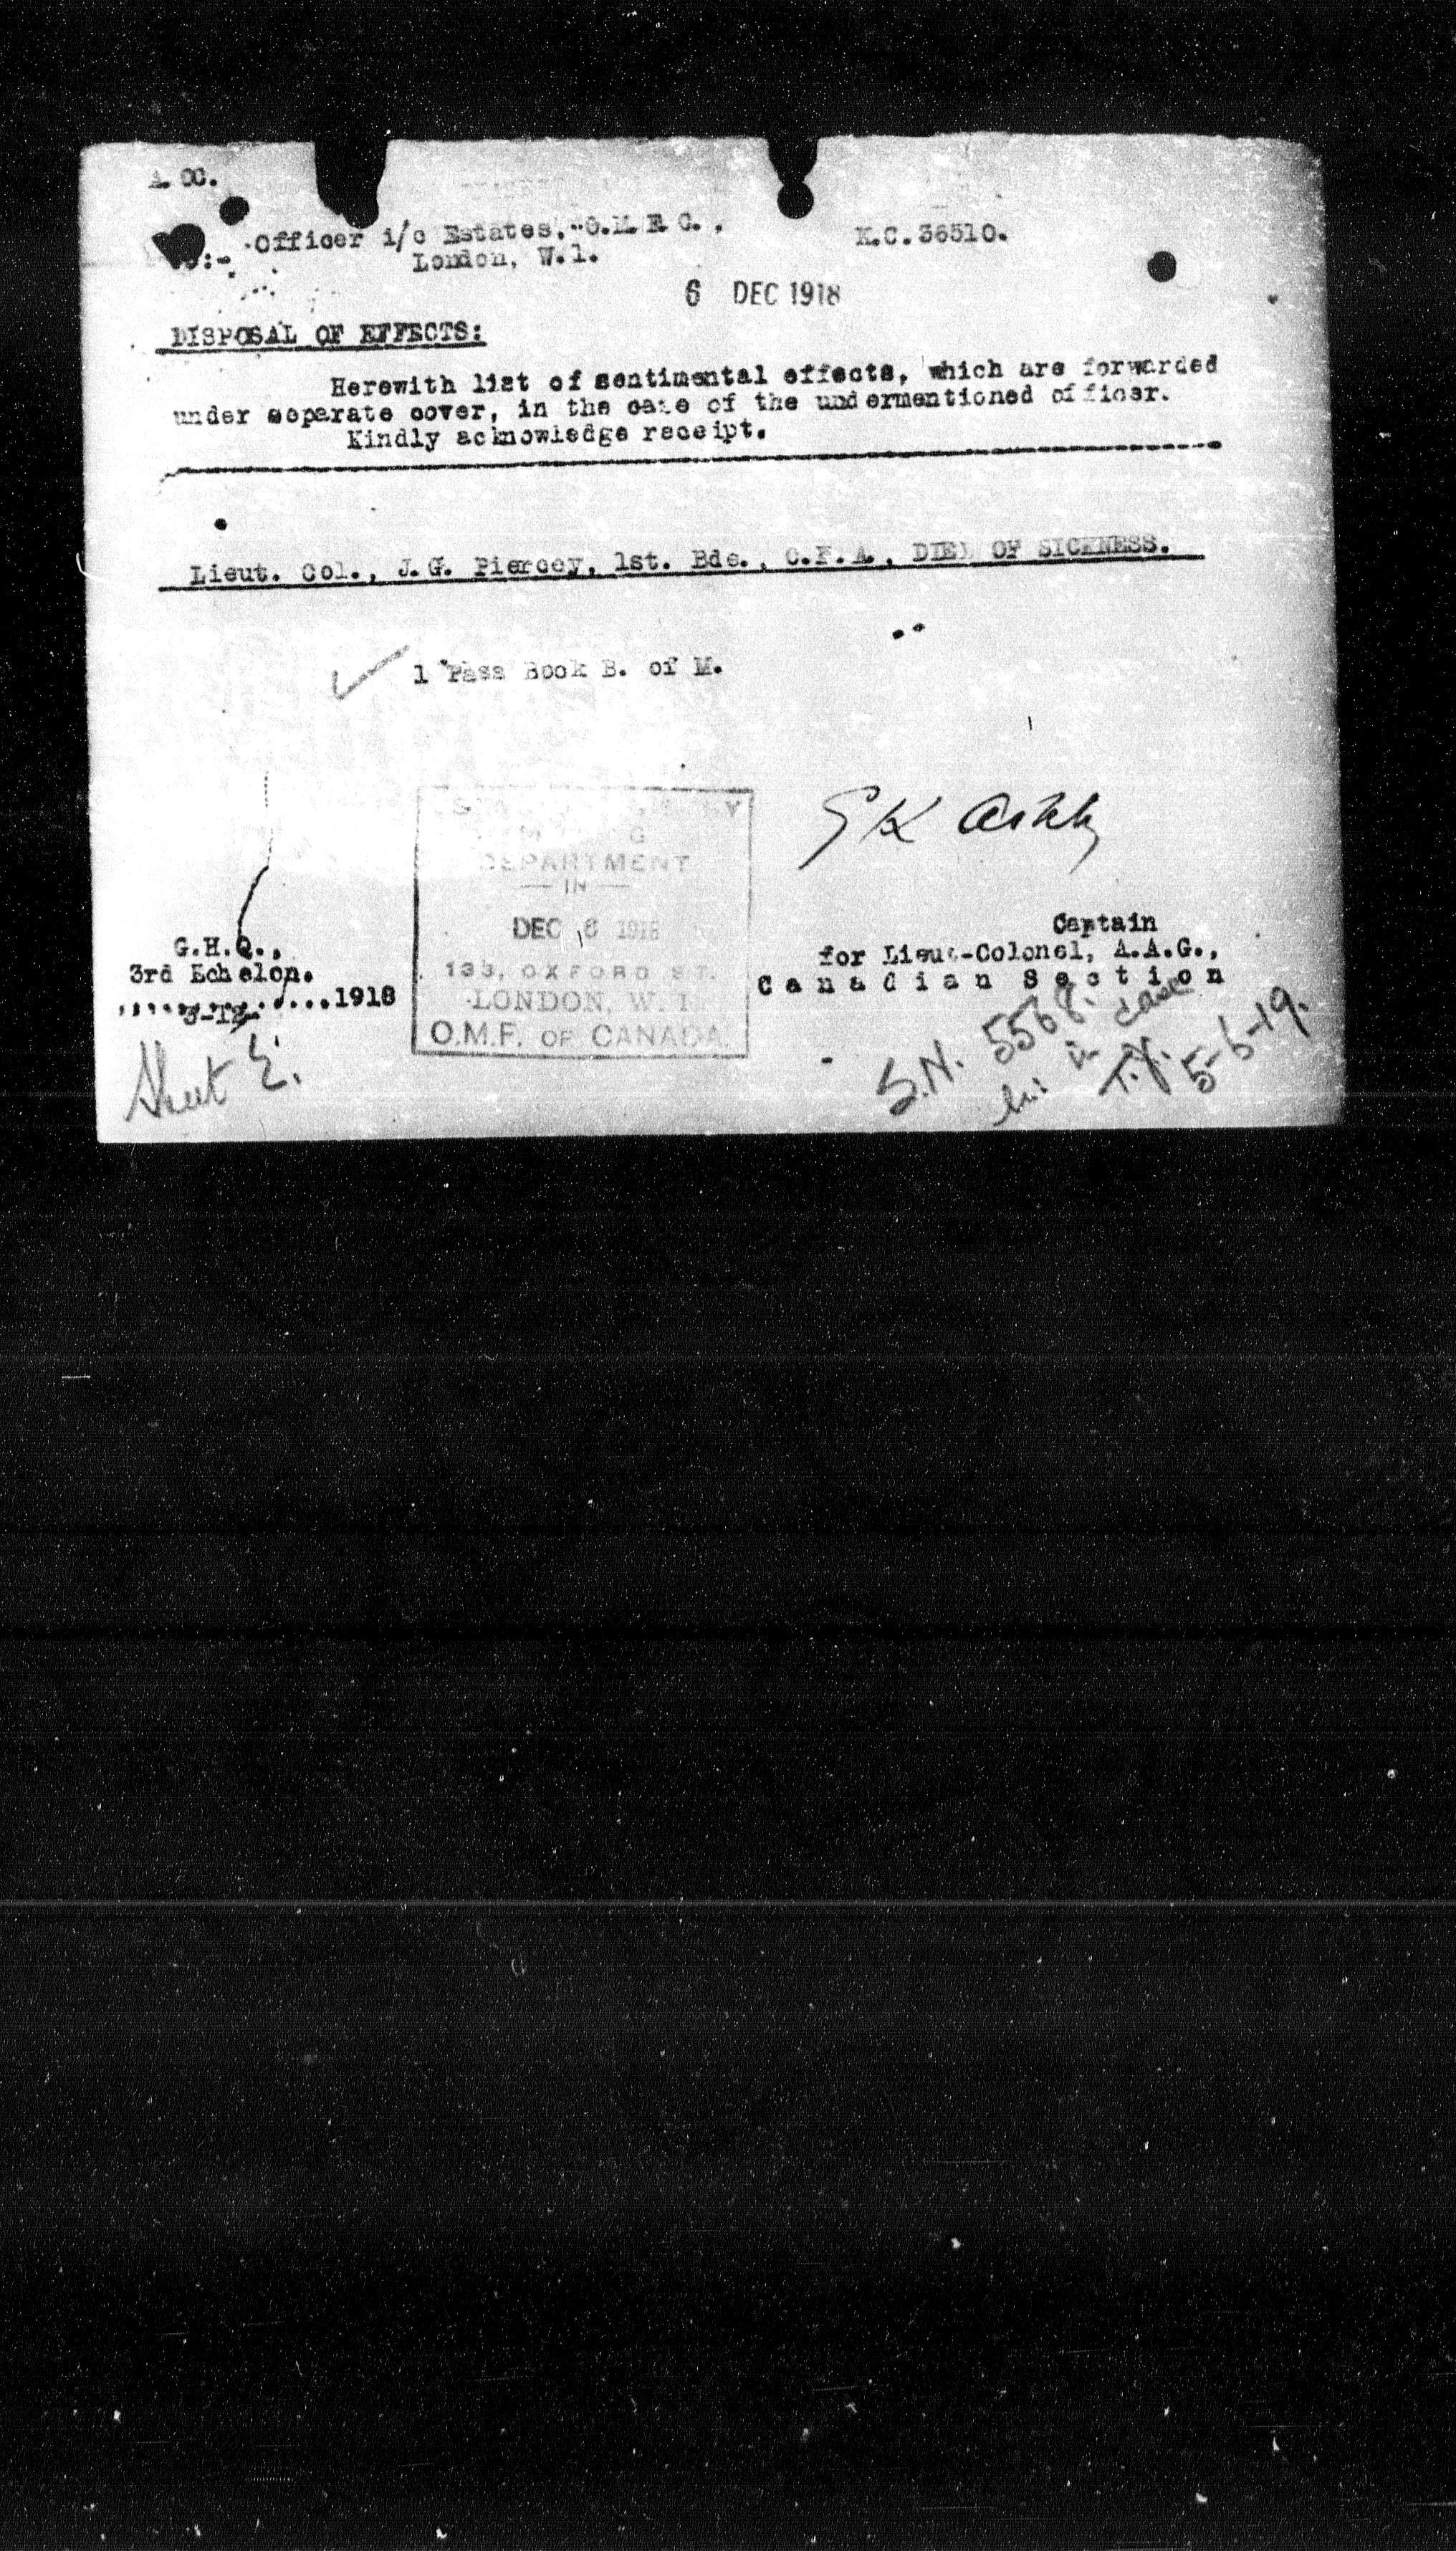 A. CC.
Officer i/c Estates, O.M.F.C.,
London, W.1.
K.C.36510.
6 DEC 1918
DISPOSAL OF EFFECTS:
Herewith list of sentimental effects, which are forwarded
under separate cover, in the case of the undermentioned officer.
Kindly acknowledge receipt.
Lieut. Col., J.G. Piercey, 1st. Bde., C.F.A., DIED OF SICKNESS.
1 Pass Book B. of M.
DEPARTMENT
— IN —
DEC 6 1918
133, OXFORD ST.
LONDON, W. 1
O.M.F. OF CANADA.
Captain
for Lieut-Colonel, A.A.G.,
Canadian Section
G.H.Q.,
3rd Echelon.
3-12- 1918
Sheet E.
S.N. 5568.
in case
T.J.
5-6-19.